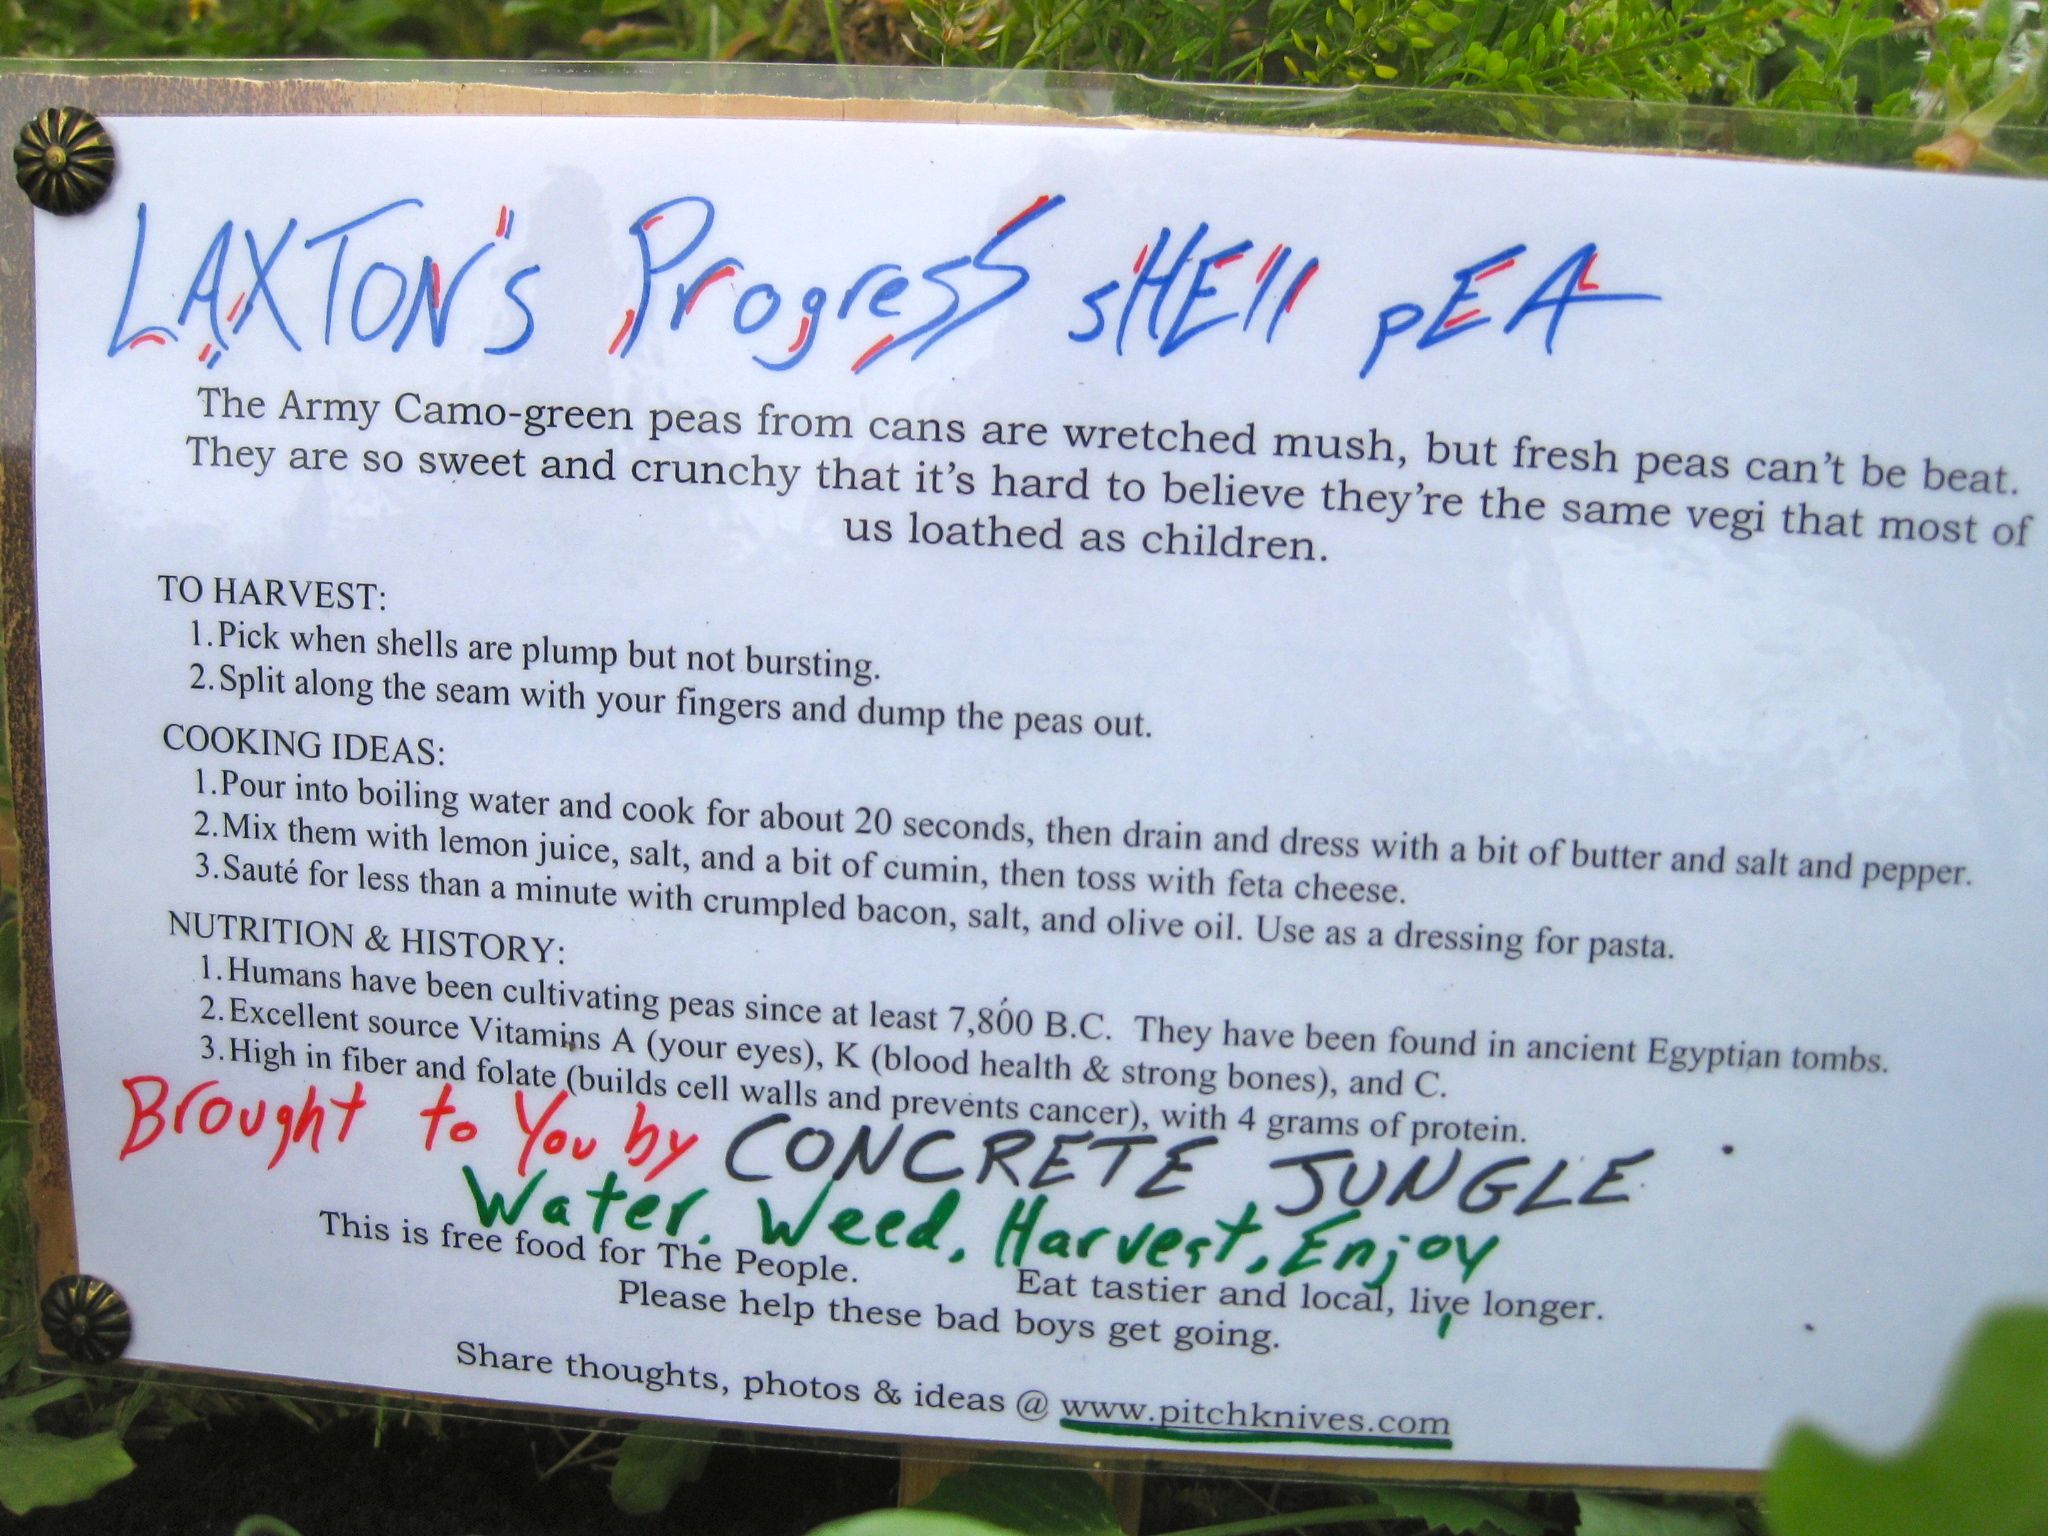 LAXTON's Progress sHEll pEA
The Army Camo-green peas from cans are wretched mush, but fresh peas can't be beat.
They are so sweet and crunchy that it's hard to believe they're the same vegi that most of
us loathed as children.
TO HARVEST:
1.Pick when shells are plump but not bursting.
2.Split along the seam with your fingers and dump the peas out.
COOKING IDEAS:
1.Pour into boiling water and cook for about 20 seconds, then drain and dress with a bit of butter and salt and pepper.
2.Mix them with lemon juice, salt, and a bit of cumin, then toss with feta cheese.
3.Sauté for less than a minute with crumpled bacon, salt, and olive oil. Use as a dressing for pasta.
NUTRITION & HISTORY:
1.Humans have been cultivating peas since at least 7,800 B.C. They have been found in ancient Egyptian tombs.
2.Excellent source Vitamins A (your eyes), K (blood health & strong bones), and C.
3.High in fiber and folate (builds cell walls and prevents cancer), with 4 grams of protein.
Brought to You by CONCRETE JUNGLE
Water, Weed, Harvest, Enjoy
This is free food for The People. Eat tastier and local, live longer.
Please help these bad boys get going.
Share thoughts, photos & ideas @ www.pitchknives.com